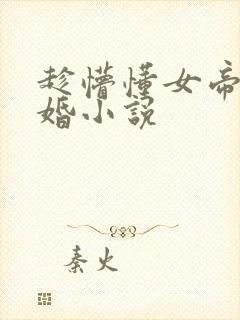 趁懵懂女帝
婚小说
秦火